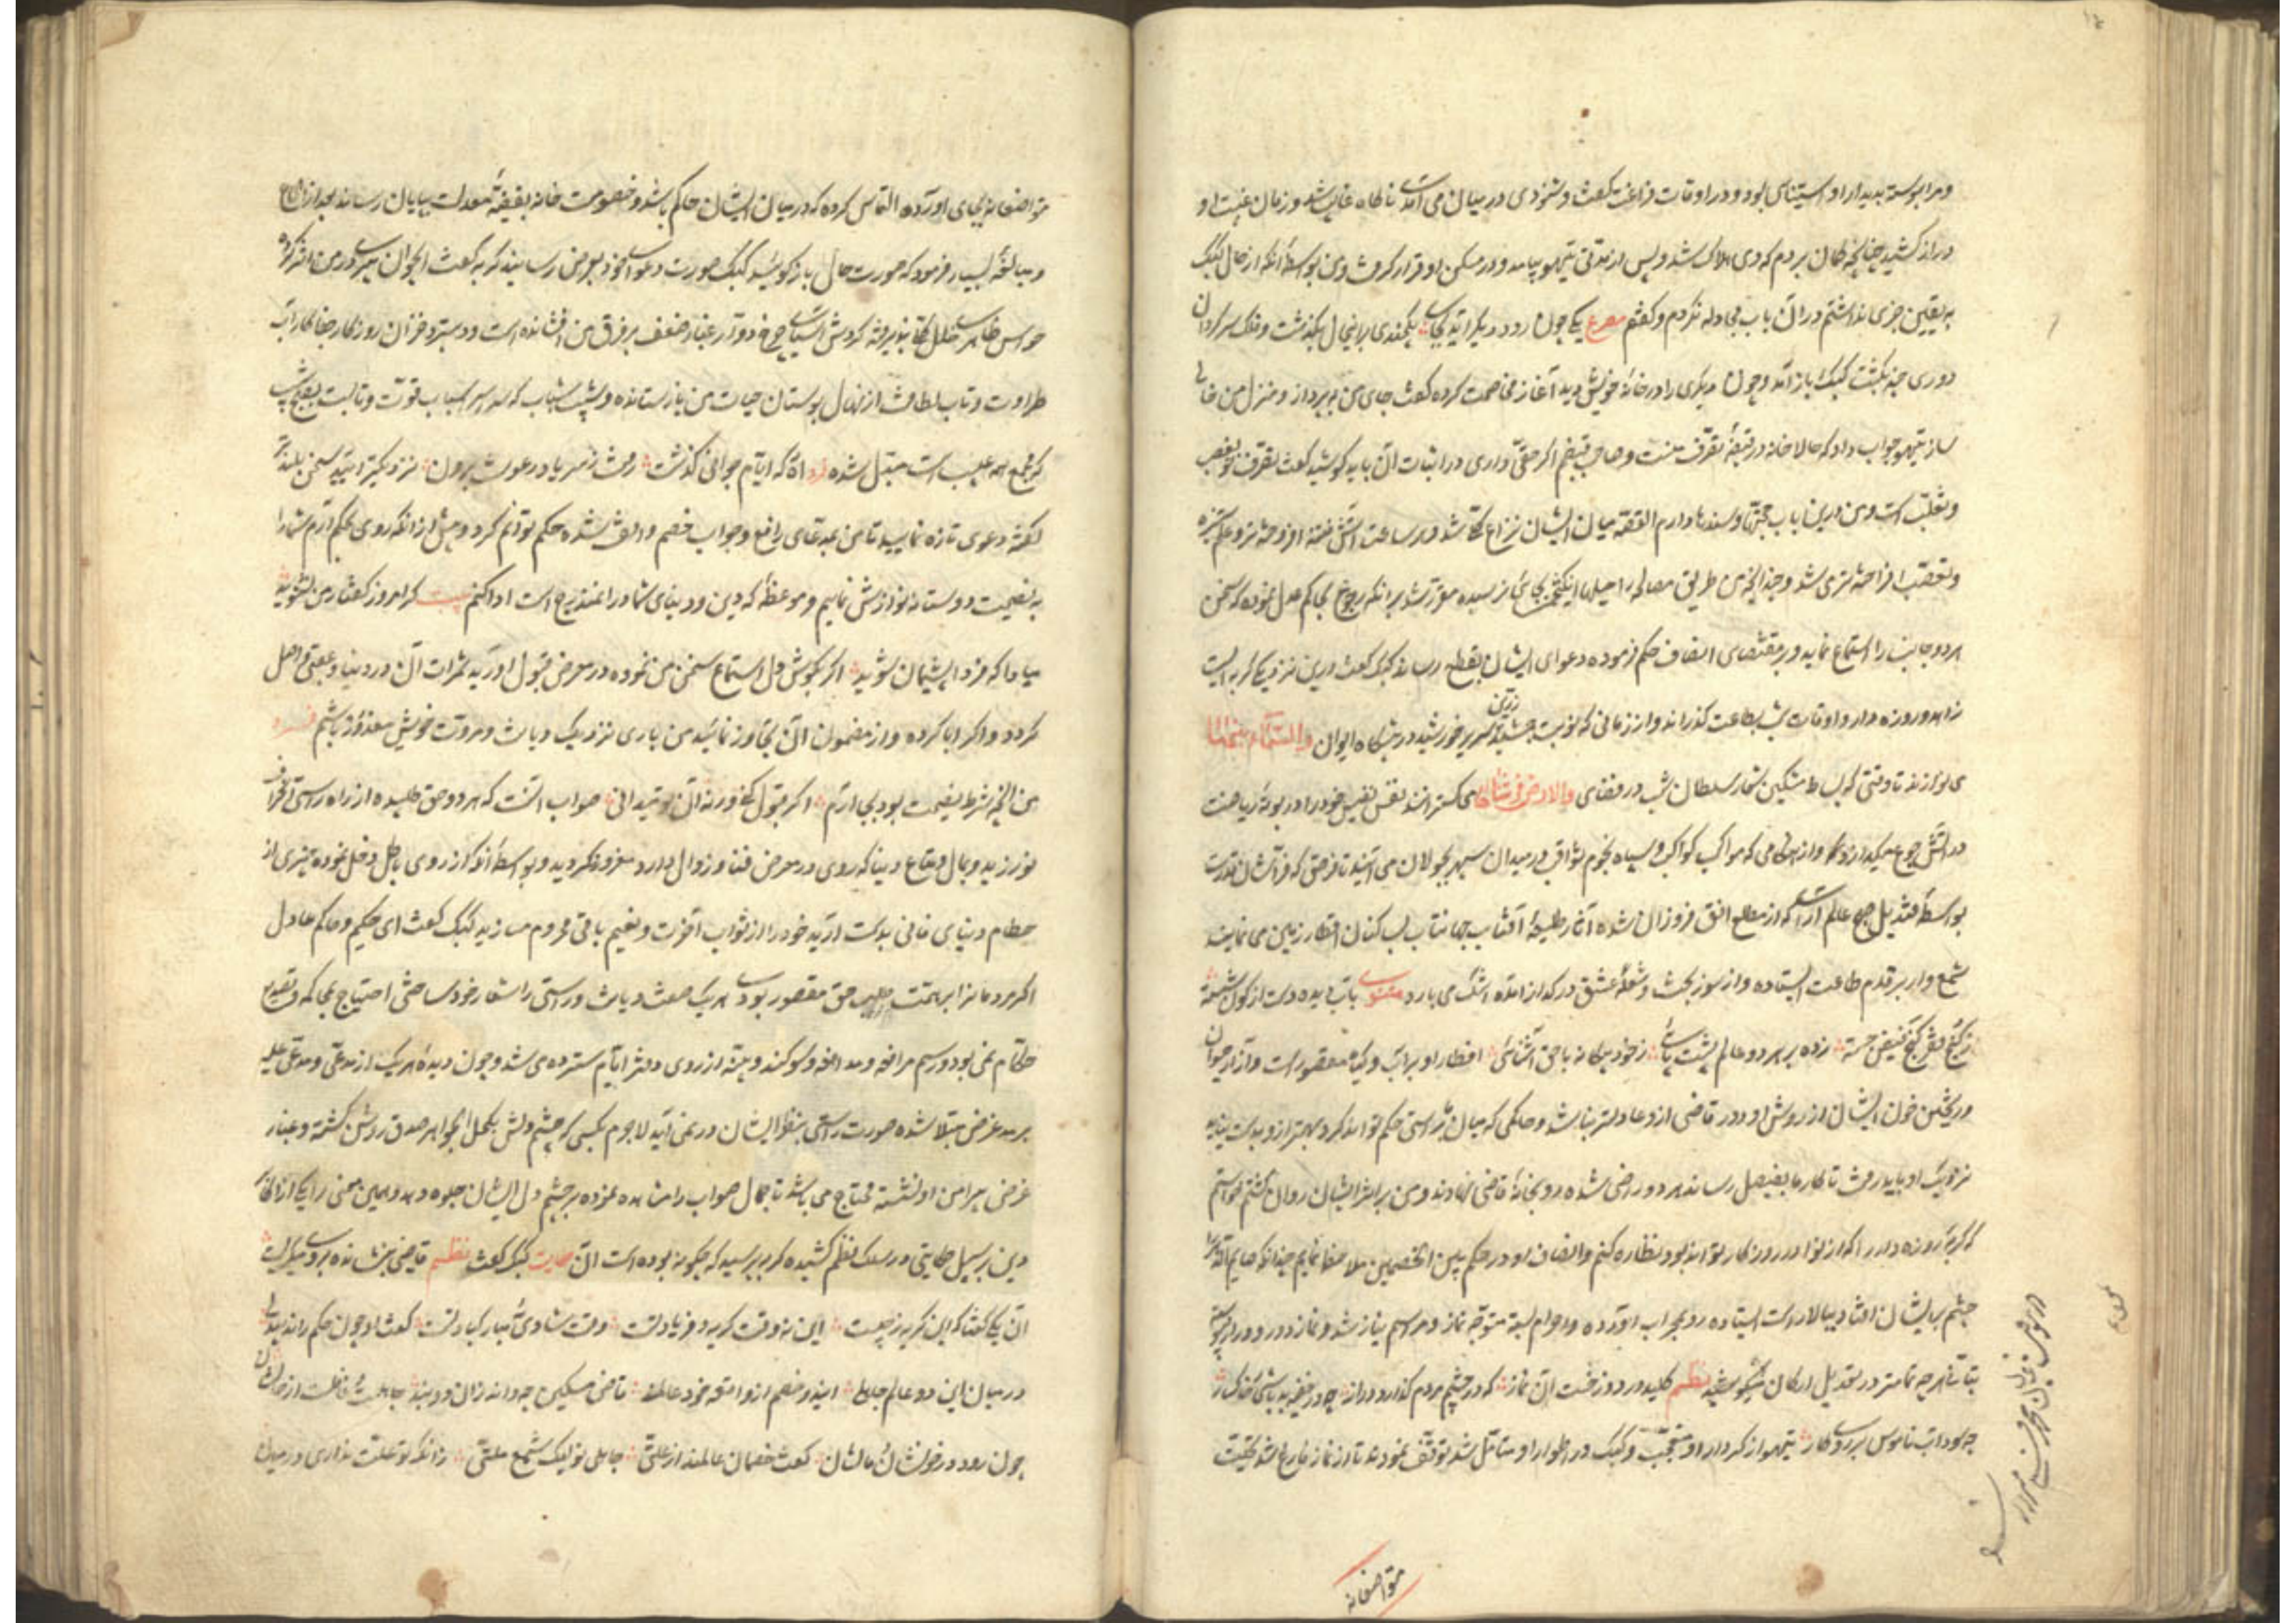 ومرا پیوسته بدیدار او استیناس بودی و در اوقات فراغت گفت و شنودی در میان می آمد ناگاه غایب شد و زمان غیبت او
دراز کشید چنانچه گمان بردم که وی هلاک شد و پس از مدتی تیهو بیامد و در مسکن او قرار گرفت و من بواسطه آنکه از حال کبک
به یقین چیزی نداشتم در آن باب مجادله نکردم و گفتم مصرع یکی چون رود دیگر آید بجای یکچندی برین حال بگذشت و فلک سرگردان
دوری چند بگشت کبک باز آمد و چون دیگری را در خانه خویش دید آغاز مخاصمت کرده گفت جای من بپرداز و منزل من خالی
ساز تیهو جواب داد که حالا خانه در قبضه تصرف منست و صاحب قبضم اگر حقی داری در اثبات آن باید کوشید گفت تصرف تو بغصب
و تغلب است و من درین باب حجتها و سندها دارم القصه میان ایشان نزاع کلی شد و هر ساعت آتش فتنه افروخته تر و علم ستیزه
و تعصب افراخته تر می شد و چندانچه من طریق مصالحه را حیلها انگیختم بجائی نرسید مقرر شد بر آنکه رجوع بحاکم عدل نموده که سخن
هر دو جانب را استماع نماید و بر مقتضای انصاف حکم فرموده دعوای ایشان بقطع رساند کبک گفت درین نزدیکی گربه ایست
زاهد و روزه دار و اوقات شب بطاعت گذراند و از زمانی که نوبت جمشید زرین سریر خورشید در پیشگاه ایوان والسماء بنیناها
می نوازند تا وقتی که بساط مشکین شعار سلطان شب در فضای والارض فرشناها می گسترانند نفس نفیس خود را در بوته ریاضت
در آتش جوع میگدازد و از هنگامی که مواکب کواکب و سپاه نجوم ثواقب در میدان سپهر بجولان می آیند تا فرصتی که فراشان قدرت
بواسطه قندیل صبح عالم آرا که از مطلع افق فروزان شده آثار طلیعه آفتاب جهانتاب بساکنان اقطار زمین می نمایند
شمع وار بر قدم طاعت ایستاده و از سوز محبت و شعله عشق در گداز آمده اشک می بارد مثنوی بآب دیده دست از کون شسته
ز کنج فقر گنج فیض جسته زده بر هر دو عالم پشت پائی ز خود بیگانه با حق آشنائی افطار او بر آب و گیاه مقصورست و آزار حیوان
و ریختن خون ایشان از روش او دور قاضی ازو عادلتر نباشد و حاکمی که میان ما براستی حکم تواند کرد بهتر از و بدست نیاید
نزدیک او باید رفت تا کار ما بفیصل رساند هر دو راضی شده رو بخانه قاضی نهادند و من بر اثر ایشان روان گشتم خواستم
که گربه روزه دار را که از نوادر روزگار تواند بود نظاره کنم و انصاف او در حکم بین الخصمین ملاحظه نمایم چندانکه صایم الدهر را
چشم بر ایشان افتاد ببالا راست ایستاده رو بمحراب آورده و احرام بسته متوجه نماز و مراسم نیاز شد و نماز دور و دراز پیوسته
بتأنی هر چه تمامتر در تعدیل ارکان میکوشید نظم کلید در دوزخست آن نماز که در چشم مردم گذاری دراز چه در خفیه بد باشی و خاکسار
چه سود آب ناموس بر روی کار تیهو از کردار او متعجب و کبک در اطوار او متأمل شد توقف نمودند تا از نماز فارغ شد تحیت
متواضعانه
متواضعانه بجای آورده التماس کرده که در میان ایشان حاکم باشد و خصومت خانه بقضیه معدلت بپایان رساند بعد از الحاح
و مبالغه بسیار فرمود که صورت حال باز گوئید کبک صورت دعوای خود بعرض رسانید گربه گفت ای جوان پیری در من اثر کرده
حواس ظاهر خلل کلی پذیرفته گردش آسیای چرخ دوار غبار ضعف بر فرق من افشانده است و دستبرد خزان روزگار جفاکار آب
طراوت و تاب لطافت از نهال بوستان حیات من باز ستانده و شب شباب که سر اسباب قوت و تابست بصبح شیب
که مجمع همه عیب است مبدل شده فرد آه که ایام جوانی گذشت رفت ز سر باد رعونت برون نزدیکتر آئید سخن بلندتر
گفته دعوی تازه نمائید تا من بمدعای مدعی و جواب خصم واقف شده حکم توانم کرد و پیش از آنکه روی بحکم آرم شما را
به نصیحت دوستانه نوازش نمایم و موعظه که دین و دنیای شما در آن مندرج است ادا کنم بیت گر امروز گفتار من نشنوید
مبادا که فردا پشیمان شوید اگر بگوش دل استماع سخن من نموده در معرض قبول آورید ثمرات آن در دنیا و عقبی حاصل
گردد و اگر ابا کرده و از مضمون آن تجاوز نمائید من باری نزدیک دیانت و مروت خویش معذور باشم فرد
من آنچه شرط نصیحت بود بجای آرم اگر قبول کنی ورنه آن تو میدانی صواب آنست که هر دو حق طلبیده از راه راستی انحراف
نورزید و بمال و متاع دنیا که روی در معرض فنا و زوال دارد مغرور نگردید و بواسطه آنکه از روی باطل دخل نموده چیزی از
حطام دنیای فانی بدست آرید خود را از ثواب آخرت و نعیم باقی محروم مسازید کبک گفت ای حکیم و حاکم عادل
اگر مردمان را همت بر طلب حق مقصور بودی هر یک صفت دیانت و راستی را شعار خود ساختی احتیاج بمحاکمه و تصدیع
حکام نمی بود و رسم مرافعه و مدافعه و سوگند و بینه از روی دفتر ایام سترده می شد و چون دیده هر یک از مدعی و مدعی علیه
برمد غرض مبتلا شده صورت راستی بنظر ایشان در نمی آید لاجرم بکسی که چشم دلش بکحل الجواهر صدق روشن گشته و غبار
غرض پیرامن او نگشته محتاج می باشند تا جمال صواب را مشاهده نموده بر چشم دل ایشان جلوه دهد و همین معنی را یکی از اکابر
دین بر سبیل حکایتی در سلک نظم کشیده گربه پرسید که چگونه بوده است آن حکایت کبک گفت نظم قاضی بنشاندند و میگریست
آن یکی گفتا که این گریه ز چیست این نه وقت گریه و فریاد تست وقت شادی و مبارکباد تست گفت او چون حکم راند بیدلی
در میان این دو عالم جاهلی ایندو خصم از واقعه خود عالمند قاضی مسکین چه داند زان دو بند جاهلست و غافلست از حالشان
چون رود در خونشان و مالشان گفت خصمان عالمند از علتی جاهلی تو لیک شمع ملتی زانکه تو علت نداری در میان